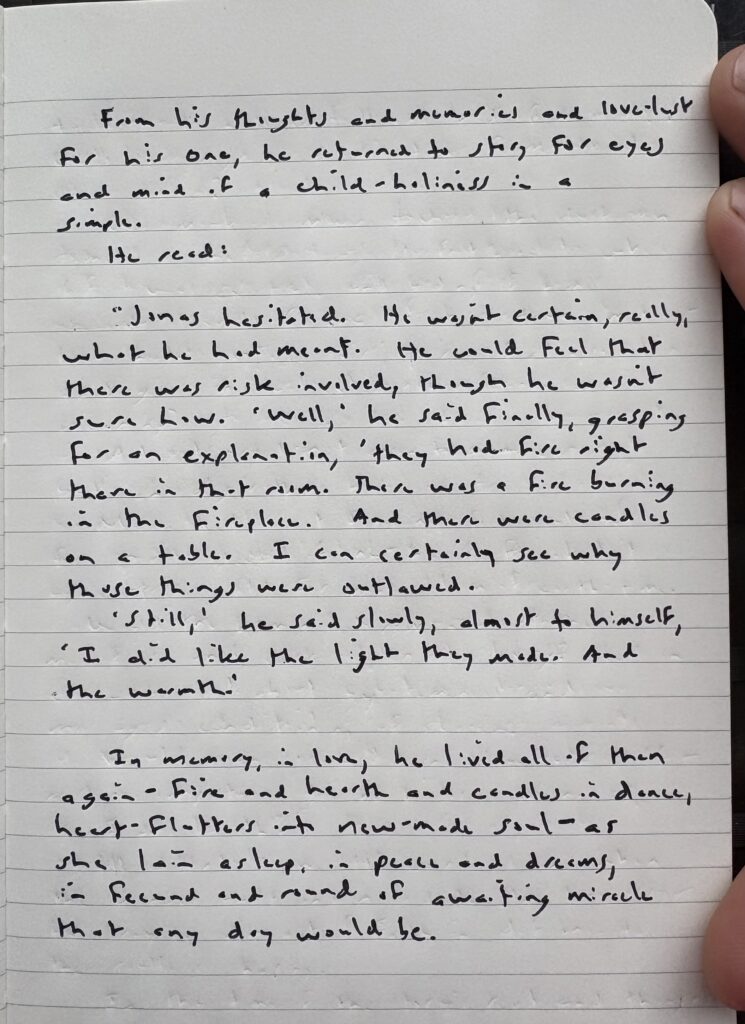 From his thoughts and memories and love-lust
for his one, he returned to story for eyes
and mind of a child-holiness in a
simple.
He read:
"Jonas hesitated. He wasn't certain, really,
what he had meant. He could feel that
there was risk involved, though he wasn't
sure how. 'Well,' he said finally, grasping
for an explanation, 'they had fire right
there in that room. There was a fire burning
in the fireplace. And there were candles
on a table. I can certainly see why
those things were outlawed.
'Still,' he said slowly, almost to himself,
'I did like the light they made. And
the warmth.'
In memory, in love, he lived all of them
again - fire and hearth and candles in dance,
heart-flutters into new-made soul - as
she lain asleep, in peace and dreams,
in fecund and round of awaiting miracle
that any day would be.